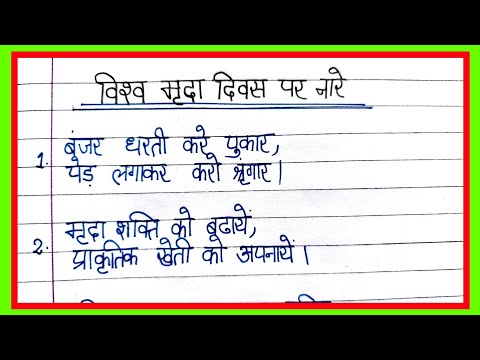 विश्व मृदा दिवस पर नारे
1. बंजर धरती करे पुकार,
पेड़ लगाकर करो श्रृंगार।
2. मृदा शक्ति को बढायें,
प्राकृतिक खेती को अपनायें।